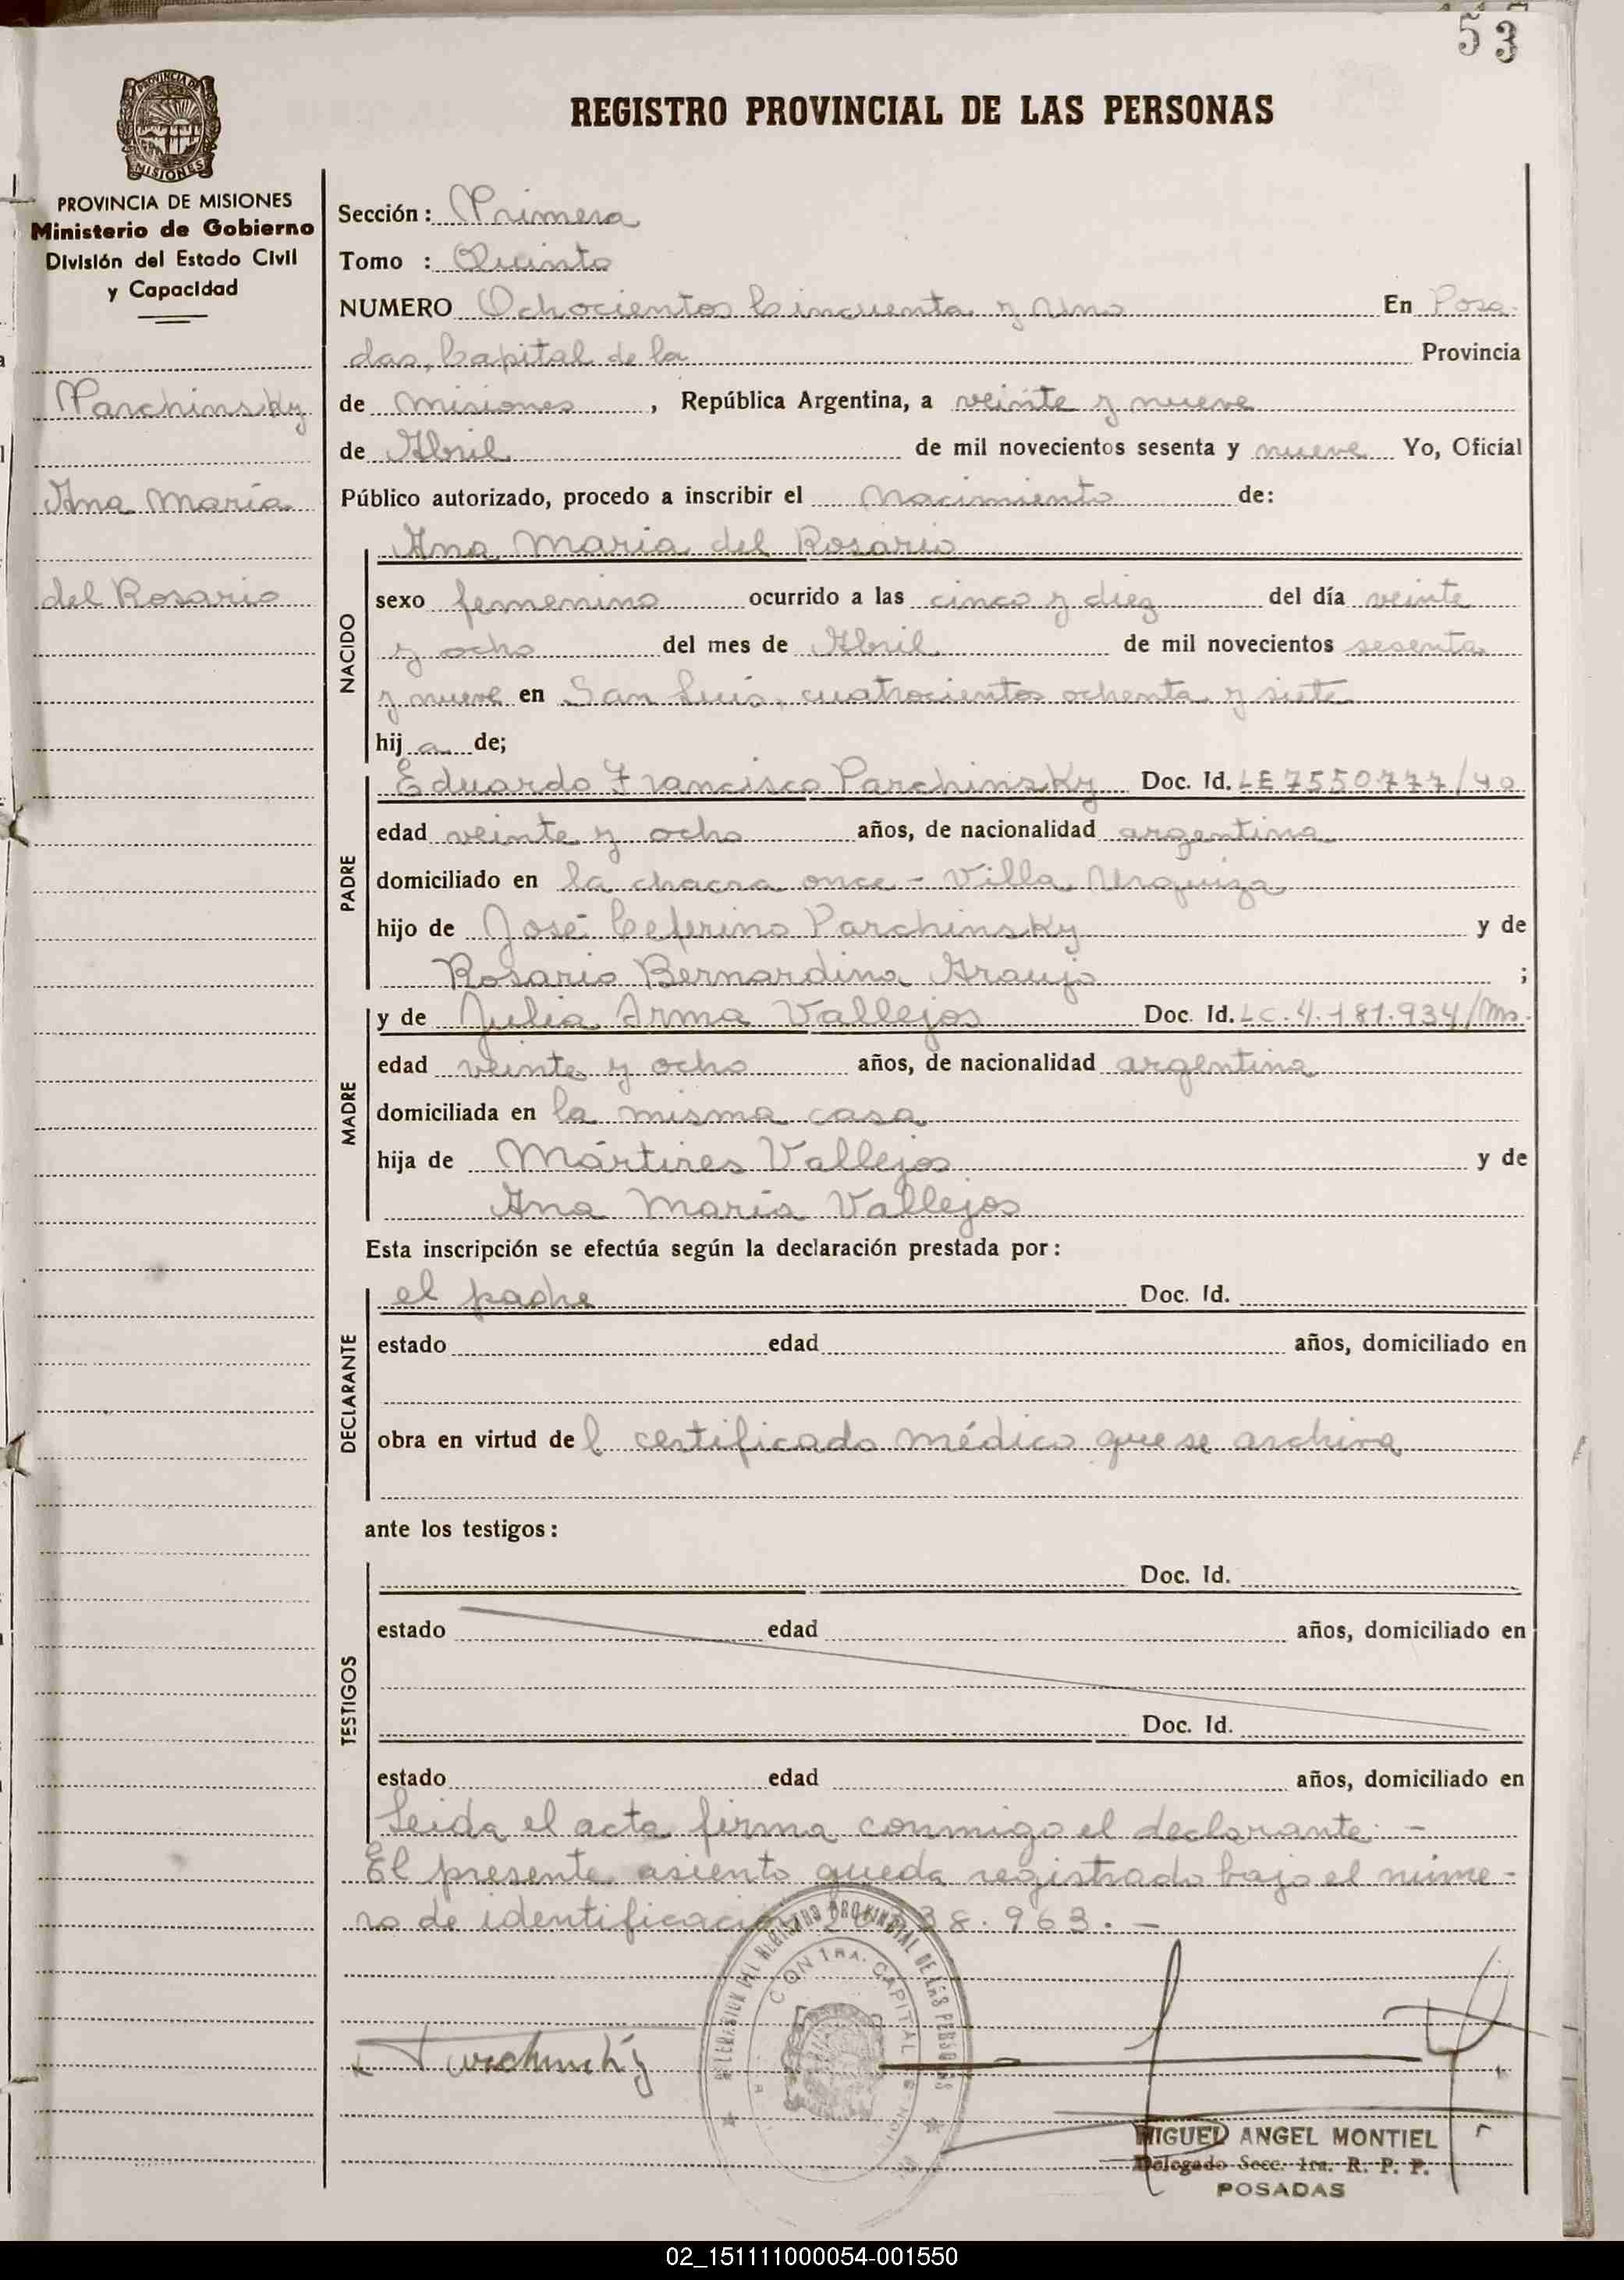 53
PROVINCIA DE
MISIONES
REGISTRO PROVINCIAL DE LAS PERSONAS
PROVINCIA DE MISIONES
Ministerio de Gobierno
División del Estado Civil
y Capacidad
Parchinsky
Ana María
del Rosario
Sección: Primera
Tomo : Quinto
NUMERO Ochocientos Cincuenta y Uno En Posa-
das, Capital de la Provincia
de Misiones, República Argentina, a veinte y nueve
de Abril de mil novecientos sesenta y nueve Yo, Oficial
Público autorizado, procedo a inscribir el Nacimiento de:
NACIDO
Ana María del Rosario
sexo femenino ocurrido a las cinco y diez del día veinte
y ocho del mes de Abril de mil novecientos sesenta
y nueve en San Luis, cuatrocientos ochenta y siete
hij a de;
PADRE
Eduardo Francisco Parchinsky Doc. Id. LE 7550777/40
edad veinte y ocho años, de nacionalidad argentina
domiciliado en la chacra once - Villa Urquiza
hijo de José Ceferino Parchinsky y de
Rosario Bernardina Araujo ;
MADRE
y de Julia Irma Vallejos Doc. Id. LC.4.181.934/Ms.
edad veinte y ocho años, de nacionalidad argentina
domiciliada en la misma casa
hija de Mártires Vallejos y de
Ana María Vallejos
Esta inscripción se efectúa según la declaración prestada por:
DECLARANTE
el padre Doc. Id.
estado edad años, domiciliado en
obra en virtud de l certificado médico que se archiva
ante los testigos:
TESTIGOS
Doc. Id.
estado edad años, domiciliado en
Doc. Id.
estado edad años, domiciliado en
Leida el acta firma conmigo el declarante. -
El presente asiento queda registrado bajo el núme-
ro de identificación 38.963. -
DEL REGISTRO PROVINCIAL DE LAS PERSONAS
CAPITAL
Parchinsky
MIGUEL ANGEL MONTIEL
Delegado Secc. 1ra. R. P. P.
POSADAS
02_151111000054-001550